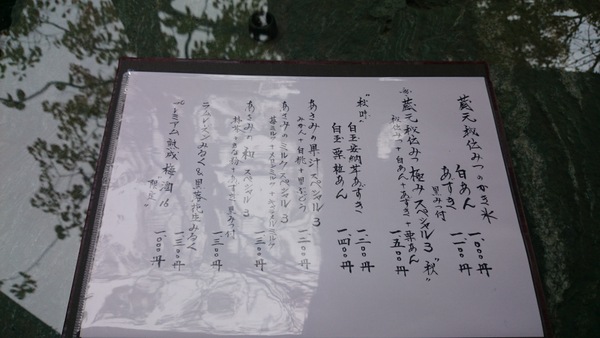 蔵元秘伝みつのかき氷
白あん 一、〇〇〇円
あずき 黒みつ付 一、一〇〇円
蔵元秘伝みつ 極みスペシャル3 "秋"
秘伝みつ+白あん+あずき+栗あん 一、五〇〇円
"秋味"
白玉安納芋あずき 一、二〇〇円
白玉栗粒あん 一、四〇〇円
あさみの果汁スペシャル3
みかん+白桃+黒ぶどう 一、二〇〇円
あさみのミルクスペシャル3 一、三〇〇円
あさみの和スペシャル3
黒みつ付 一、三〇〇円
ラムレーズンみるく&黒落花生みるく 一、三〇〇円
プレミアム熟成梅酒16
"限定" 一、〇〇〇円